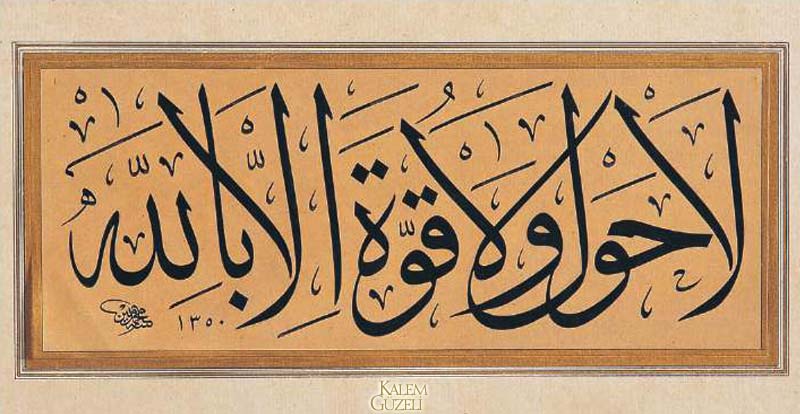 لَا حَوْلَ وَلَا قُوَّةَ اِلَّا بِاللّٰهِ
١٣٥٠
KALEM
GÜZELİ